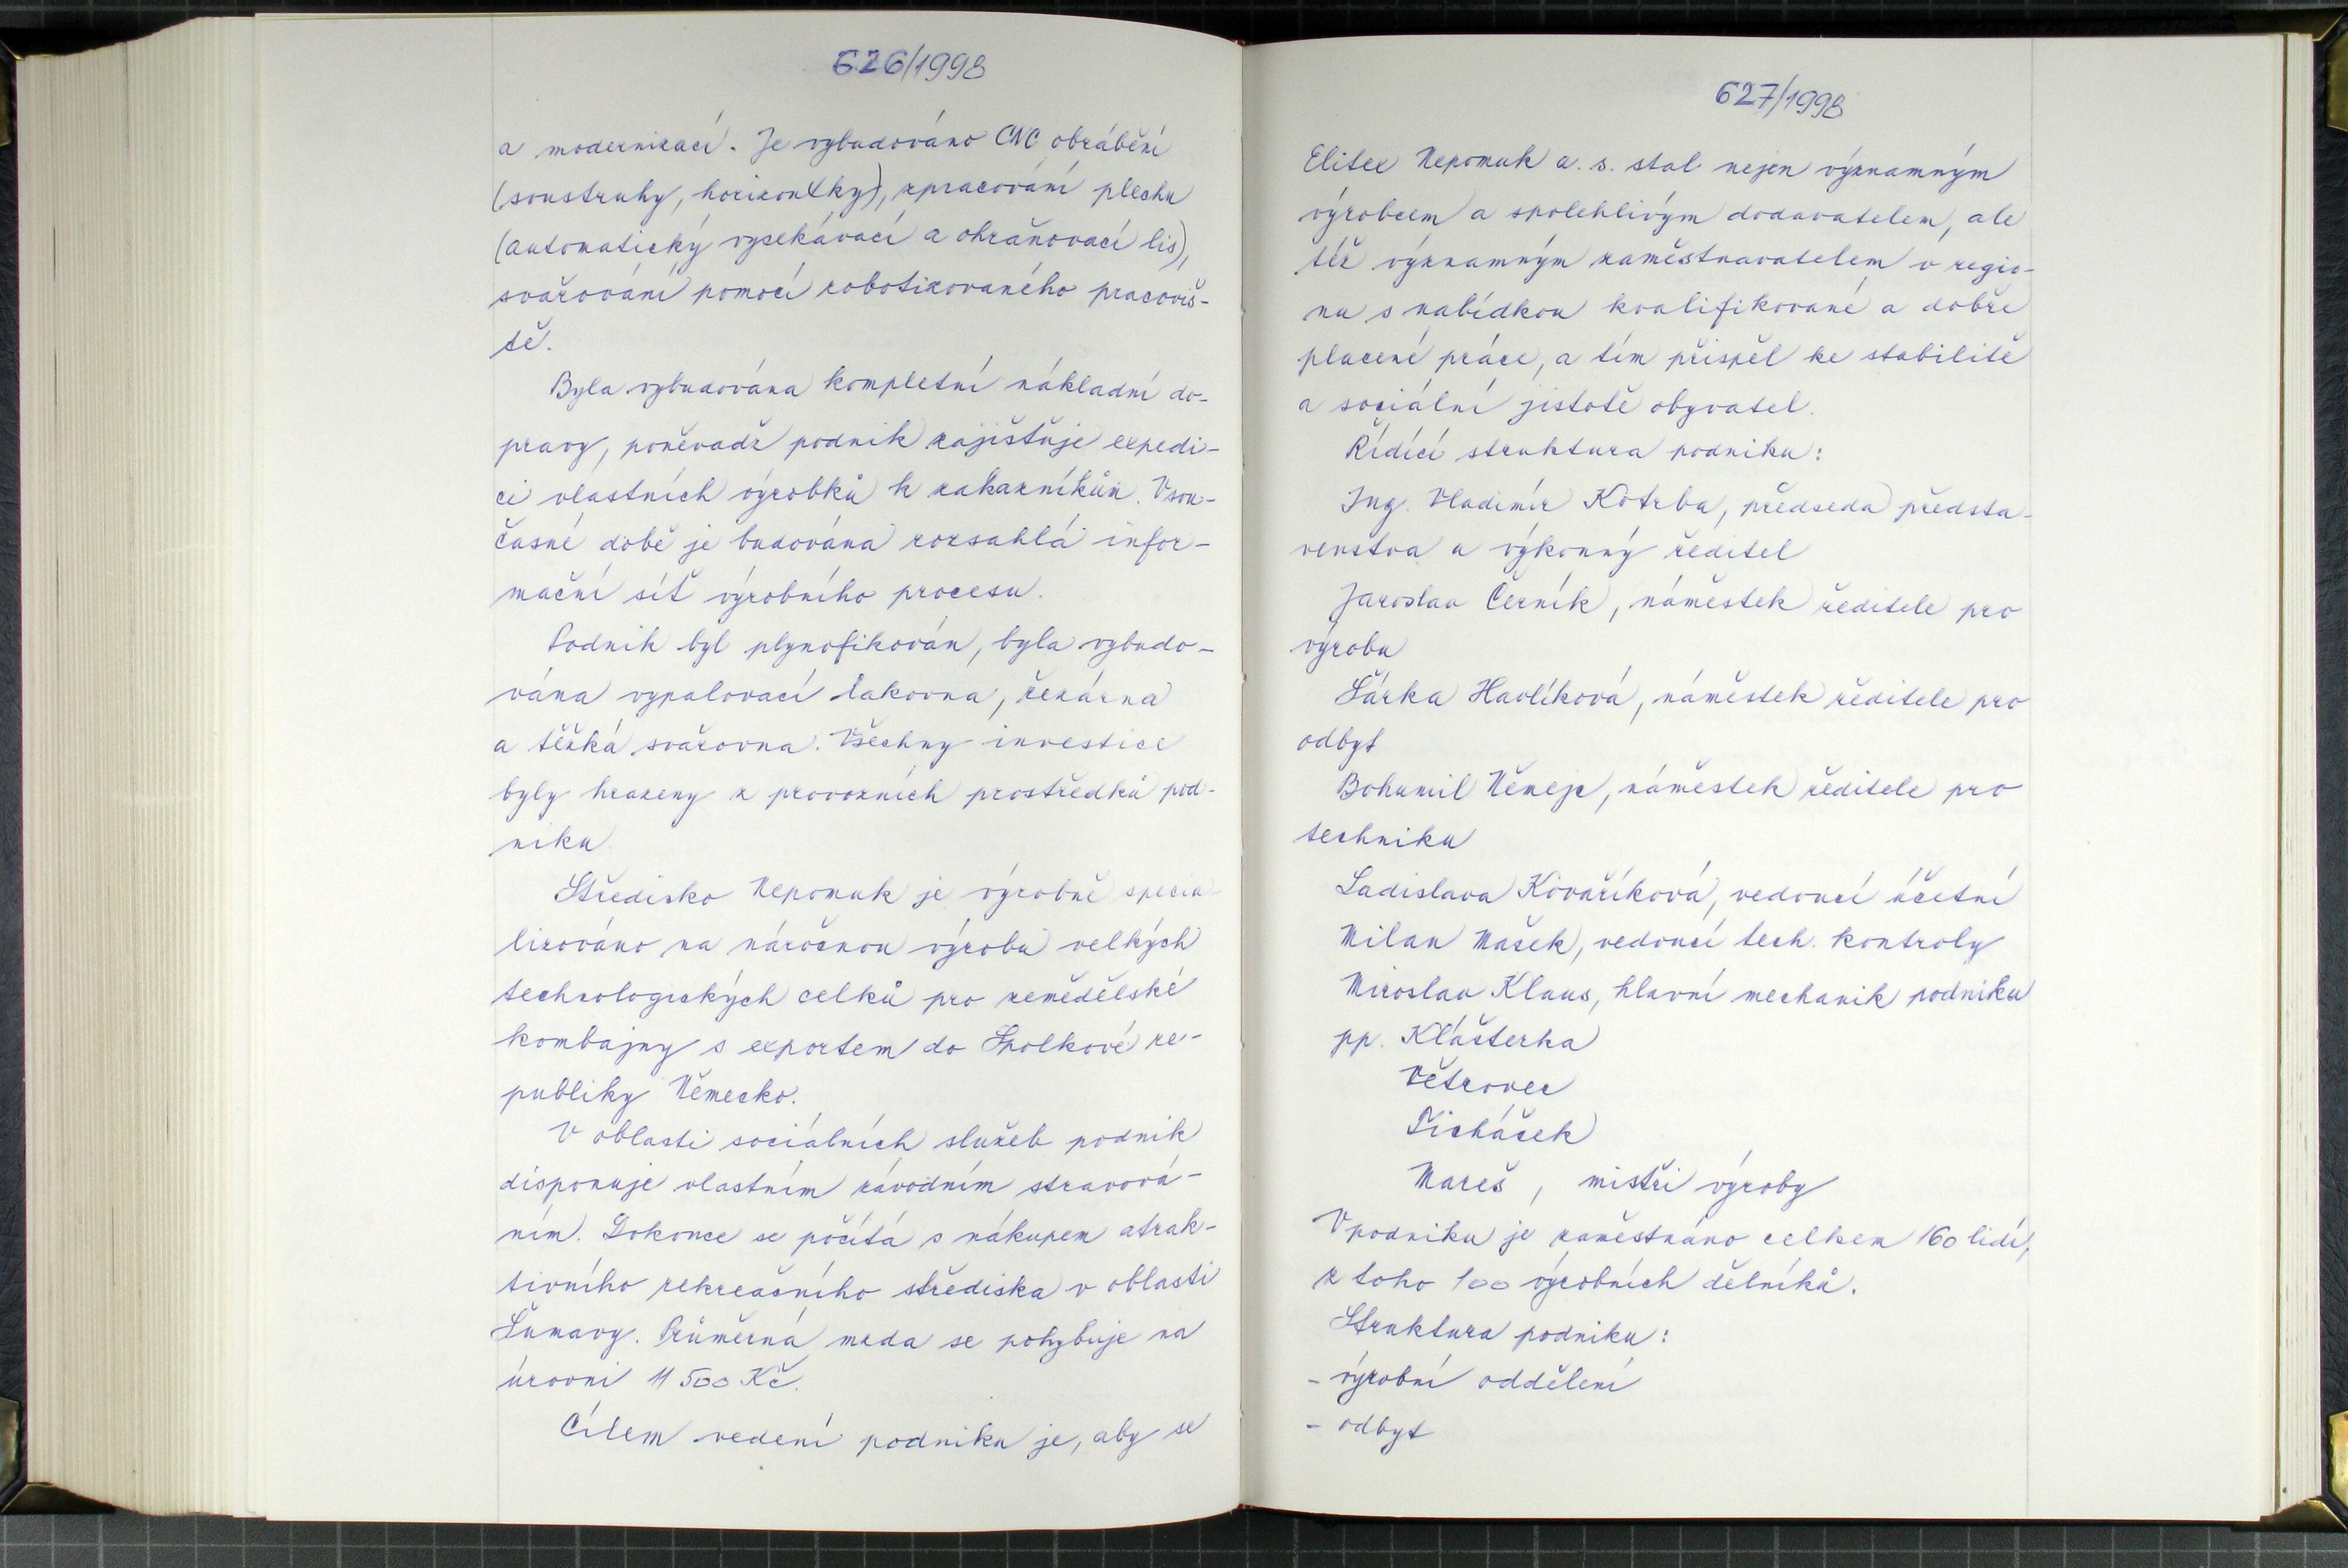 626/1998
a modernizací. Je vybudováno CNC obrábění
(soustruhy, horizontky), zpracování plechu
(automatický vysekávací a ohraňovací lis),
svařování pomocí robotizovaného pracoviš-
tě.
Byla vybudována kompletní nákladní do-
pravy, poněvadž podnik zajišťuje expedi-
ci vlastních výrobků k zákazníkům. V sou-
časné době je budována rozsáhlá infor-
mační síť výrobního procesu.
Podnik byl plynofikován, byla vybudo-
vána vypalovací lakovna, řezárna
a těžká svařovna. Všechny investice
byly hrazeny z provozních prostředků pod-
niku.
Středisko Nepomuk je výrobně specia-
lizováno na náročnou výrobu velkých
technologických celků pro zemědělské
kombajny s exportem do Spolkové re-
publiky Německo.
V oblasti sociálních služeb podnik
disponuje vlastním závodním stravová-
ním. Dokonce se počítá s nákupem atrak-
tivního rekreačního střediska v oblasti
Šumavy. Průměrná mzda se pohybuje na
úrovni 11 500 Kč.
Cílem vedení podniku je, aby se
627/1998
Elitex Nepomuk a. s. stal nejen významným
výrobcem a spolehlivým dodavatelem, ale
též významným zaměstnavatelem v regio-
nu s nabídkou kvalifikované a dobře
placené práce, a tím přispěl ke stabilitě
a sociální jistotě obyvatel.
Řídící struktura podniku:
Ing. Vladimír Kotrba, předseda předsta-
venstva a výkonný ředitel
Jaroslav Černík, náměstek ředitele pro
výrobu
Šárka Havlíková, náměstek ředitele pro
odbyt
Bohumil Němejc, náměstek ředitele pro
techniku
Ladislava Kovaříková, vedoucí účetní
Milan Mašek, vedoucí tech. kontroly
Miroslav Klaus, hlavní mechanik podniku
pp. Klášterka
Větrovec
Ticháček
Mareš, mistři výroby
V podniku je zaměstnáno celkem 160 lidí,
z toho 100 výrobních dělníků.
Struktura podniku:
- výrobní oddělení
- odbyt